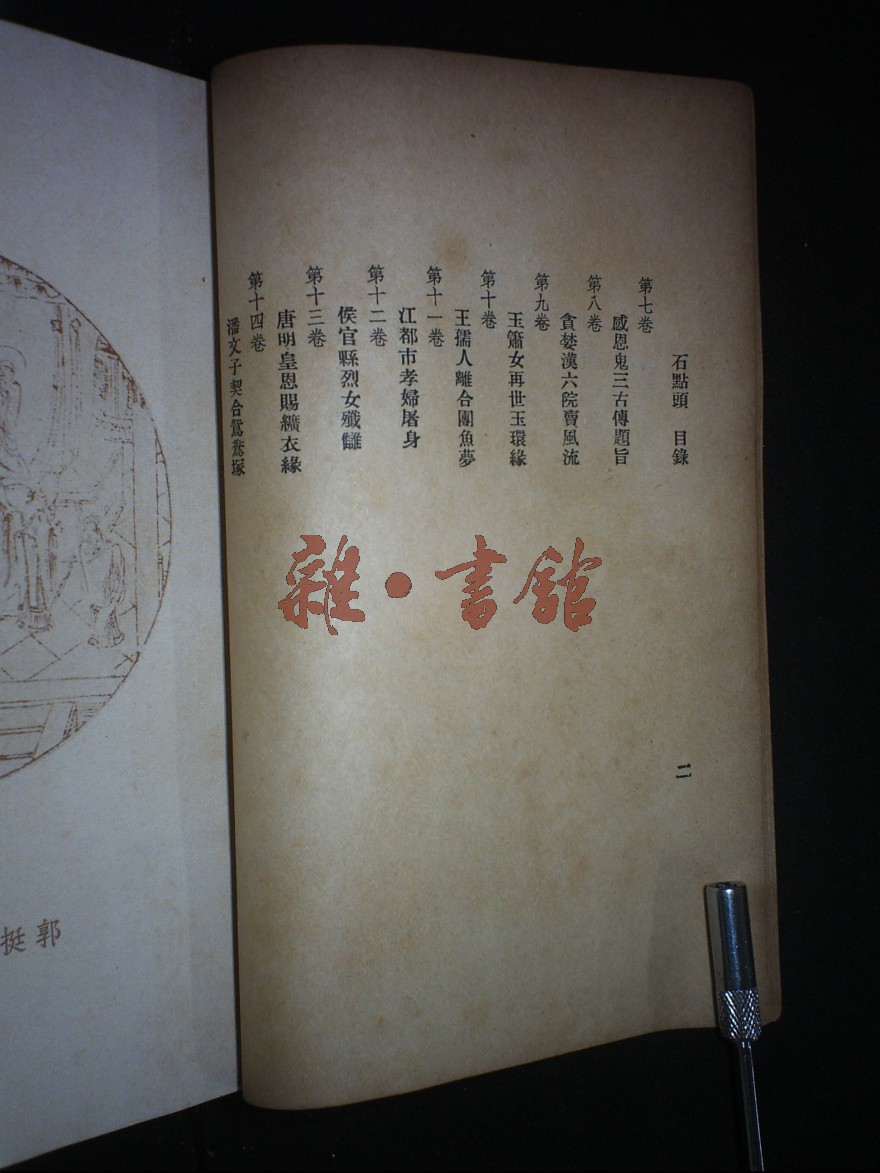 石點頭 目錄
第七卷
感恩鬼三古傳題旨
第八卷
貪婪漢六院賣風流
第九卷
玉簫女再世玉環緣
第十卷
王孺人離合團魚夢
第十一卷
江都市孝婦屠身
第十二卷
侯官縣烈女殲讎
第十三卷
唐明皇恩賜纊衣緣
第十四卷
潘文子契合鴛鴦塚
二
雜·書館
郭挺